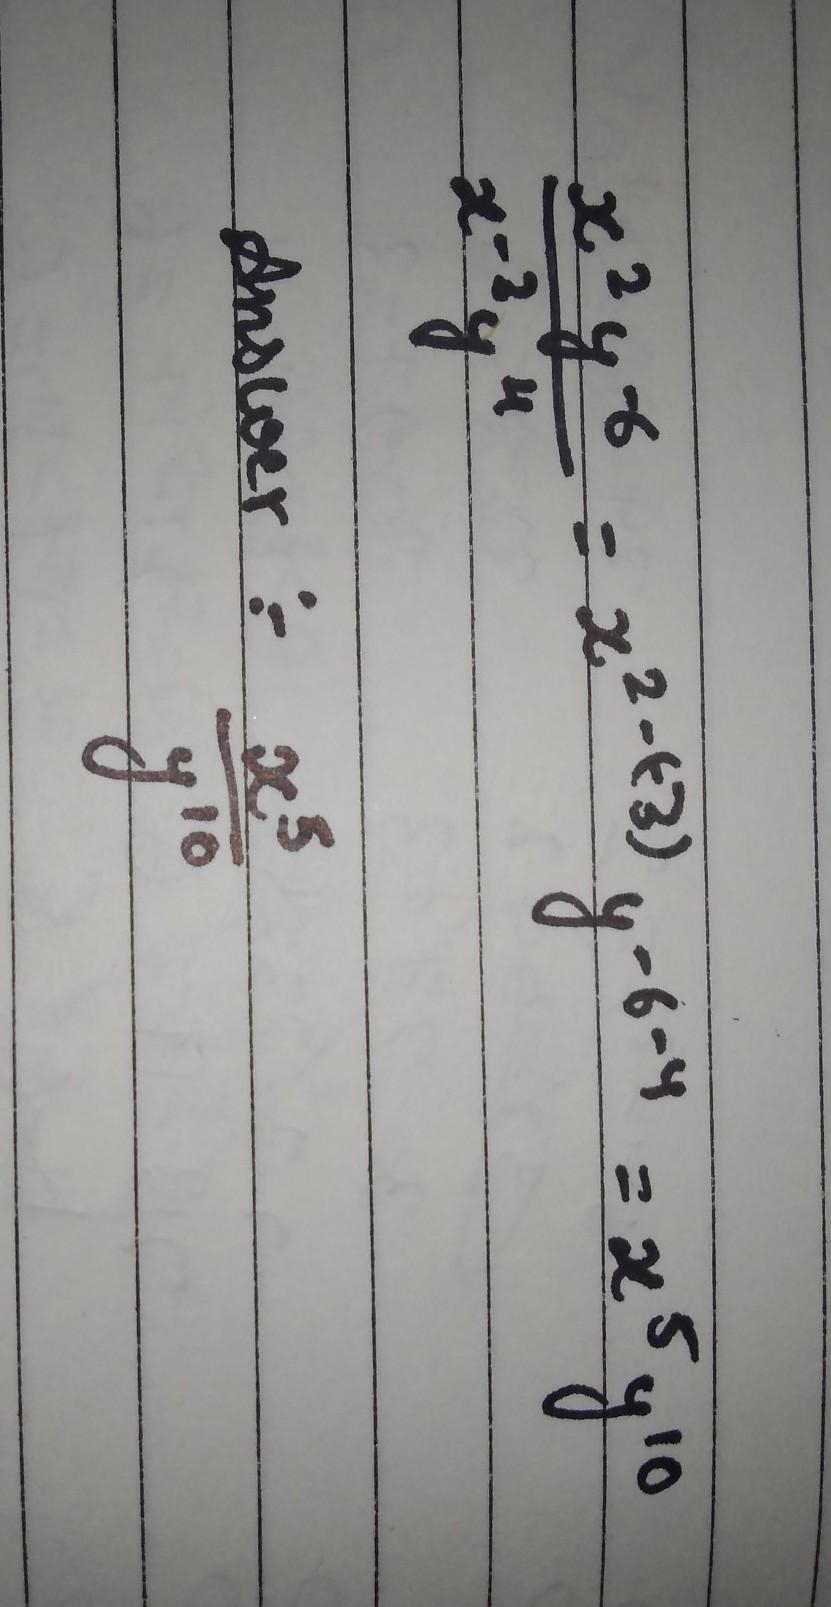 x²y⁻⁶ / x⁻³y⁴ = x²⁻⁽⁻³⁾ y⁻⁶⁻⁴ = x⁵y¹⁰
Answer :- x⁵ / y¹⁰